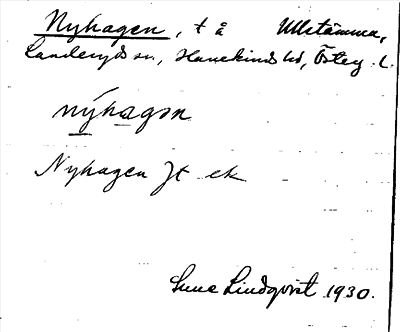 Nyhagen, t å Ullstämma,
Landeryds sn, Hanekinds hd, Östeg. l.
nýhagən
Nyhagen Jt ek
Sune Lindqvist 1930.